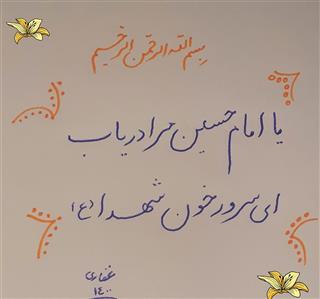 بسم الله الرحمن الرحیم
یا امام حسین مرا دریاب
ای سرور خون شهدا (ع)
غفاری
۱۴۰۰